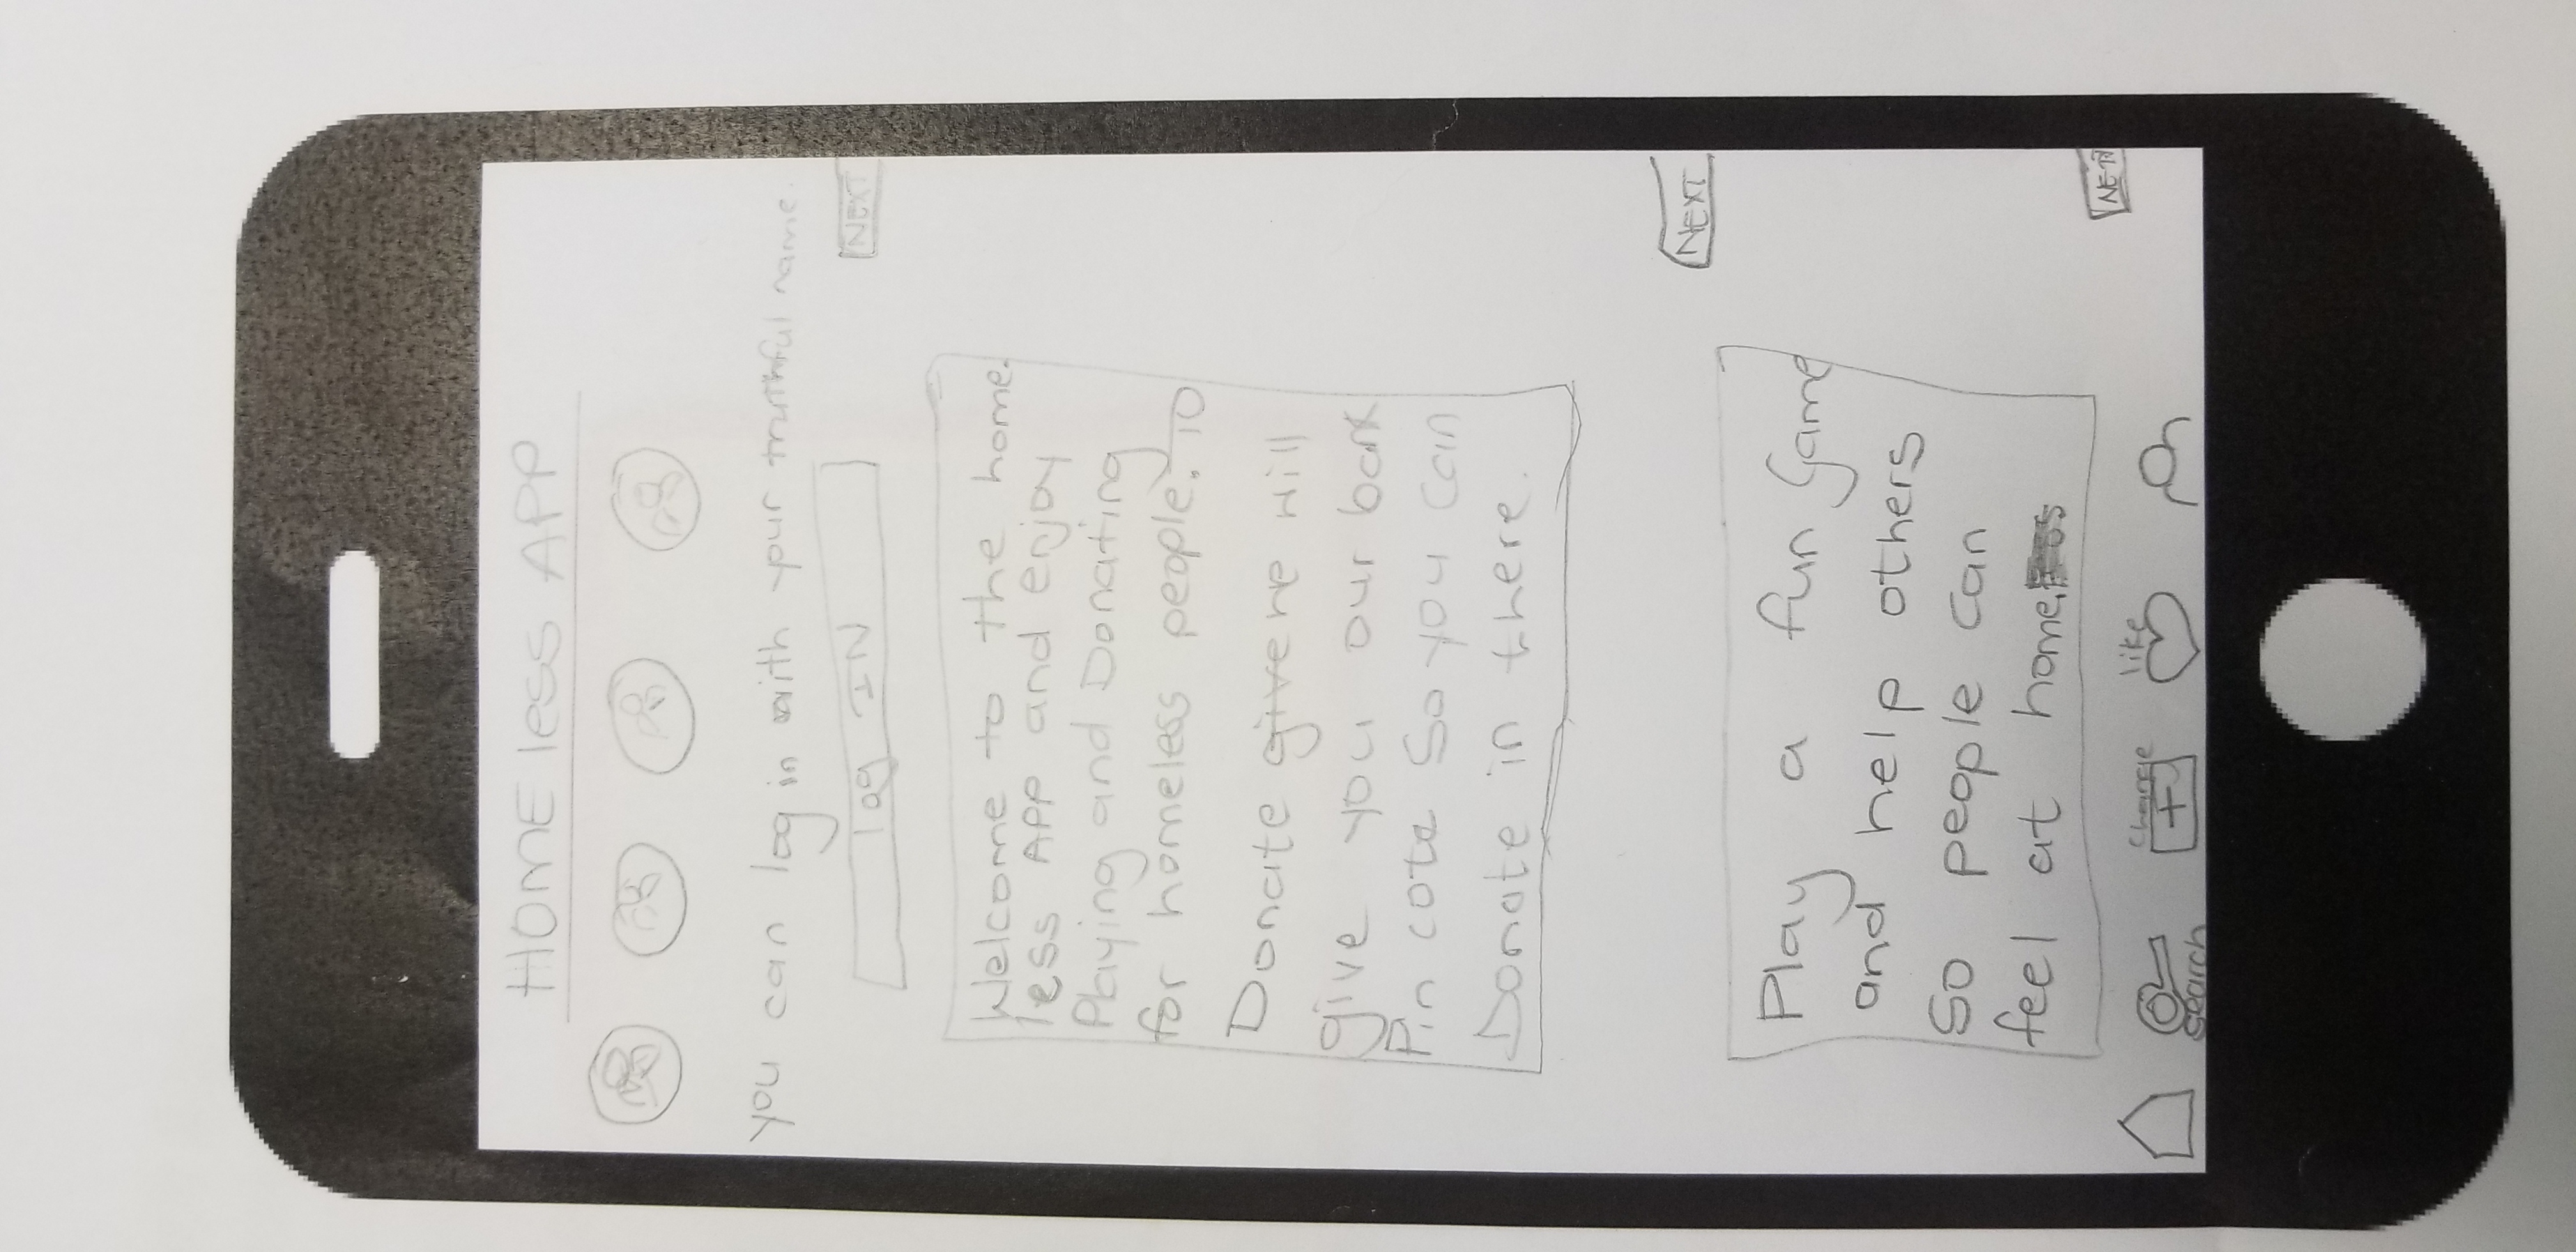 HOMEless APP
you can log in with your truthful name.
log IN
NEXT
Welcome to the home
less APP and enjoy
Playing and Donating
for homeless people. To
Donate give we will
give you our bank
Pin cote So you can
Donate in there.
NEXT
Play a fun Game
and help others
So people can
feel at home.
NEXT
search
change
like